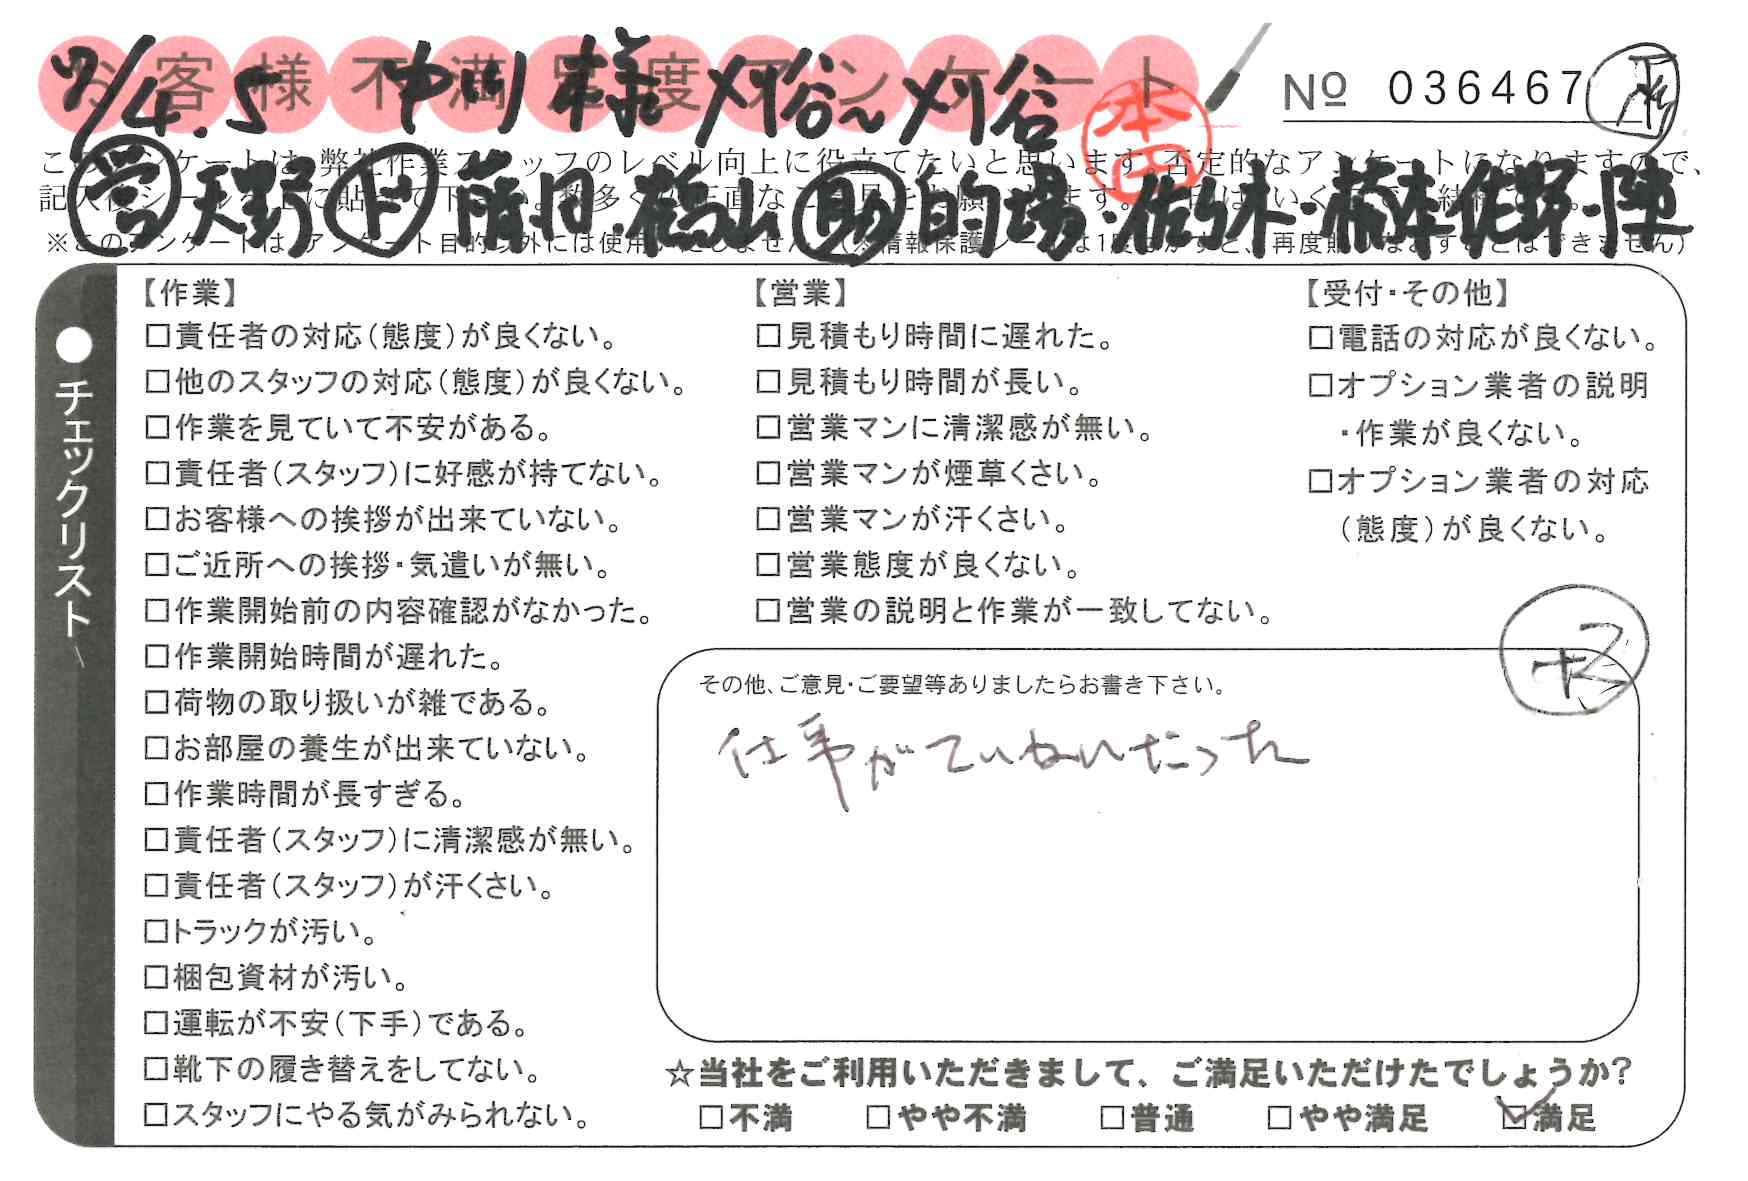 お客様不満足度アンケート
No 036467
7/4.5 中川様 刈谷〜刈谷
本田
このアンケートは、弊社作業スタッフのレベル向上に役立てたいと思います。否定的なアンケートになりますので、
営 天野 ド 山 助 的場・佐々木・橋本 佐野・陣
※このアンケートは、アンケート目的以外には使用いたしません。(※情報保護シールは1度はがすと、再度貼りなおすことはできません)
●チェックリスト
【作業】
□責任者の対応(態度)が良くない。
□他のスタッフの対応(態度)が良くない。
□作業を見ていて不安がある。
□責任者(スタッフ)に好感が持てない。
□お客様への挨拶が出来ていない。
□ご近所への挨拶・気遣いが無い。
□作業開始前の内容確認がなかった。
□作業開始時間が遅れた。
□荷物の取り扱いが雑である。
□お部屋の養生が出来ていない。
□作業時間が長すぎる。
□責任者(スタッフ)に清潔感が無い。
□責任者(スタッフ)が汗くさい。
□トラックが汚い。
□梱包資材が汚い。
□運転が不安(下手)である。
□靴下の履き替えをしてない。
□スタッフにやる気がみられない。
【営業】
□見積もり時間に遅れた。
□見積もり時間が長い。
□営業マンに清潔感が無い。
□営業マンが煙草くさい。
□営業マンが汗くさい。
□営業態度が良くない。
□営業の説明と作業が一致してない。
【受付・その他】
□電話の対応が良くない。
□オプション業者の説明
・作業が良くない。
□オプション業者の対応
(態度)が良くない。
+2
その他、ご意見・ご要望等ありましたらお書き下さい。
仕事がていねいだった
☆当社をご利用いただきまして、ご満足いただけたでしょうか?
□不満 □やや不満 □普通 □やや満足 ☑満足